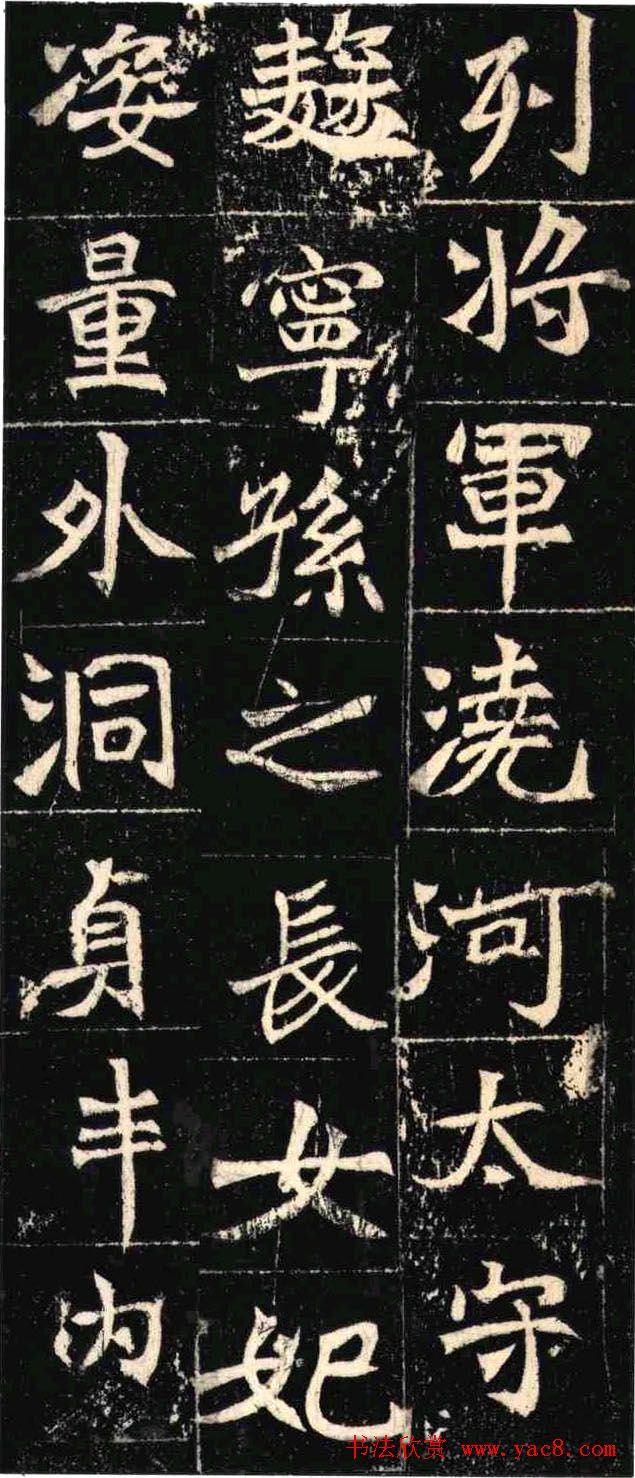 列將軍澆河太守
麴寧孫之長女妃
姿量外洞貞丰內
书法欣赏 www.yac8.com